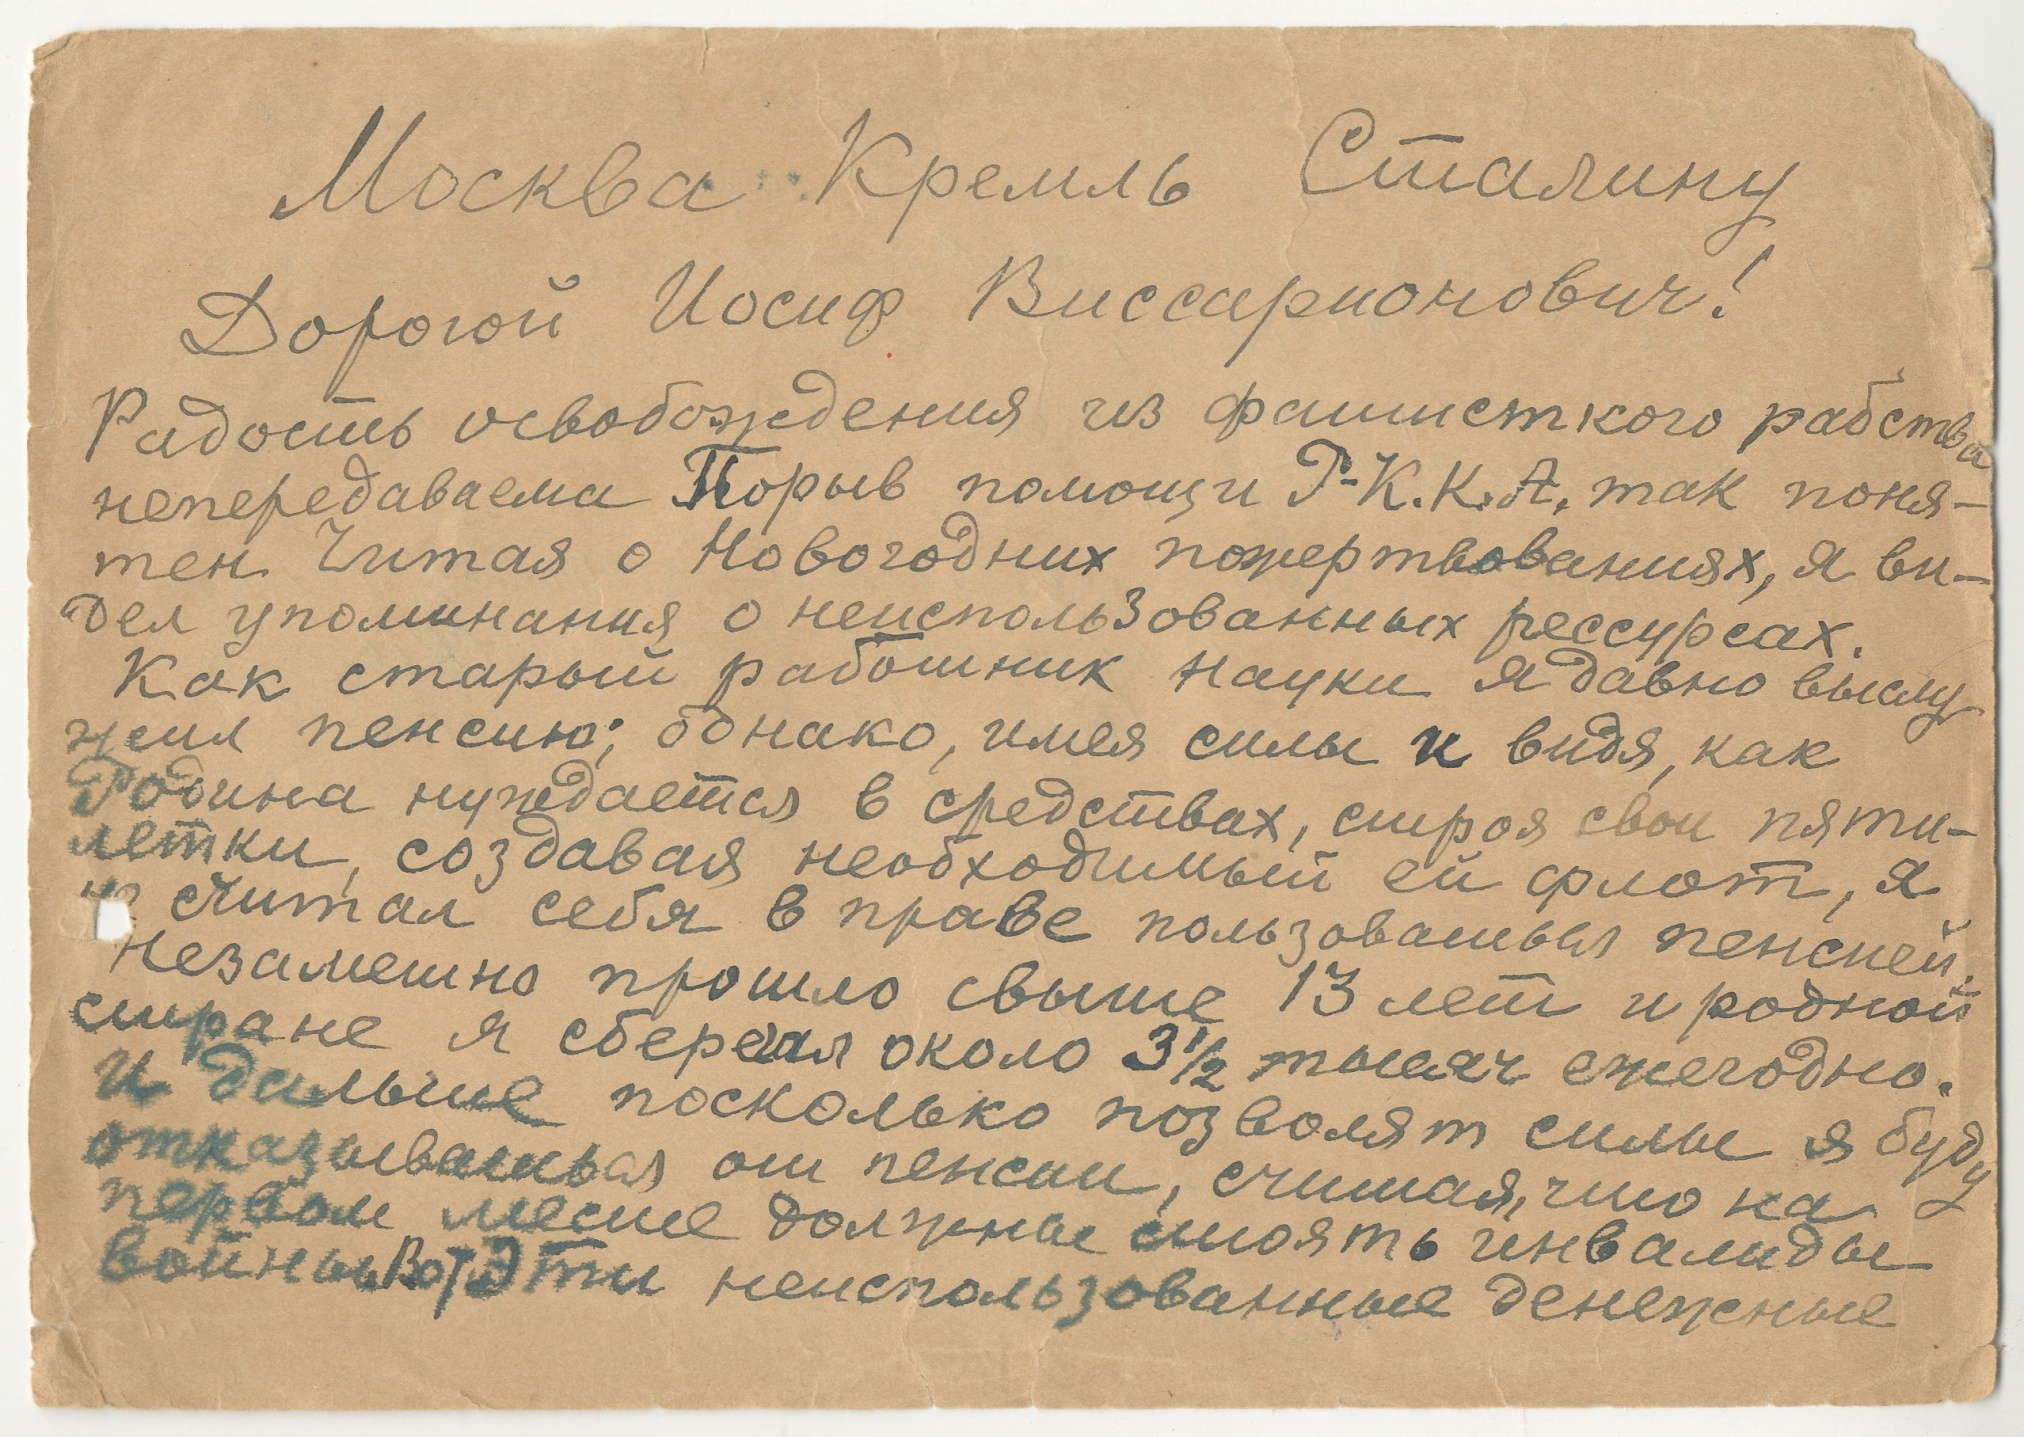 Москва Кремль Сталину
Дорогой Иосиф Виссарионович!
Радость освобождения из фашисткого рабства
непередаваема Порыв помощи Р-К.К.А. так поня-
тен. Читая о Новогодних пожертвованиях, я ви-
дел упоминания о неиспользованных рессурсах.
Как старый работник науки я давно выслу
жил пенсию; однако, имея силы и видя, как
Родина нуждается в средствах, строя свои пяти-
летки, создавая необходимый ей флот, я
не считал себя в праве пользоваться пенсией.
Незаметно прошло свыше 13 лет и родной
стране я сберегал около 3½ тысяч ежегодно.
И дальше поскольку позволят силы я буду
отказываться от пенсии, считая, что на
первом месте должны стоять инвалиды
войны Вот Эти неиспользованные денежные